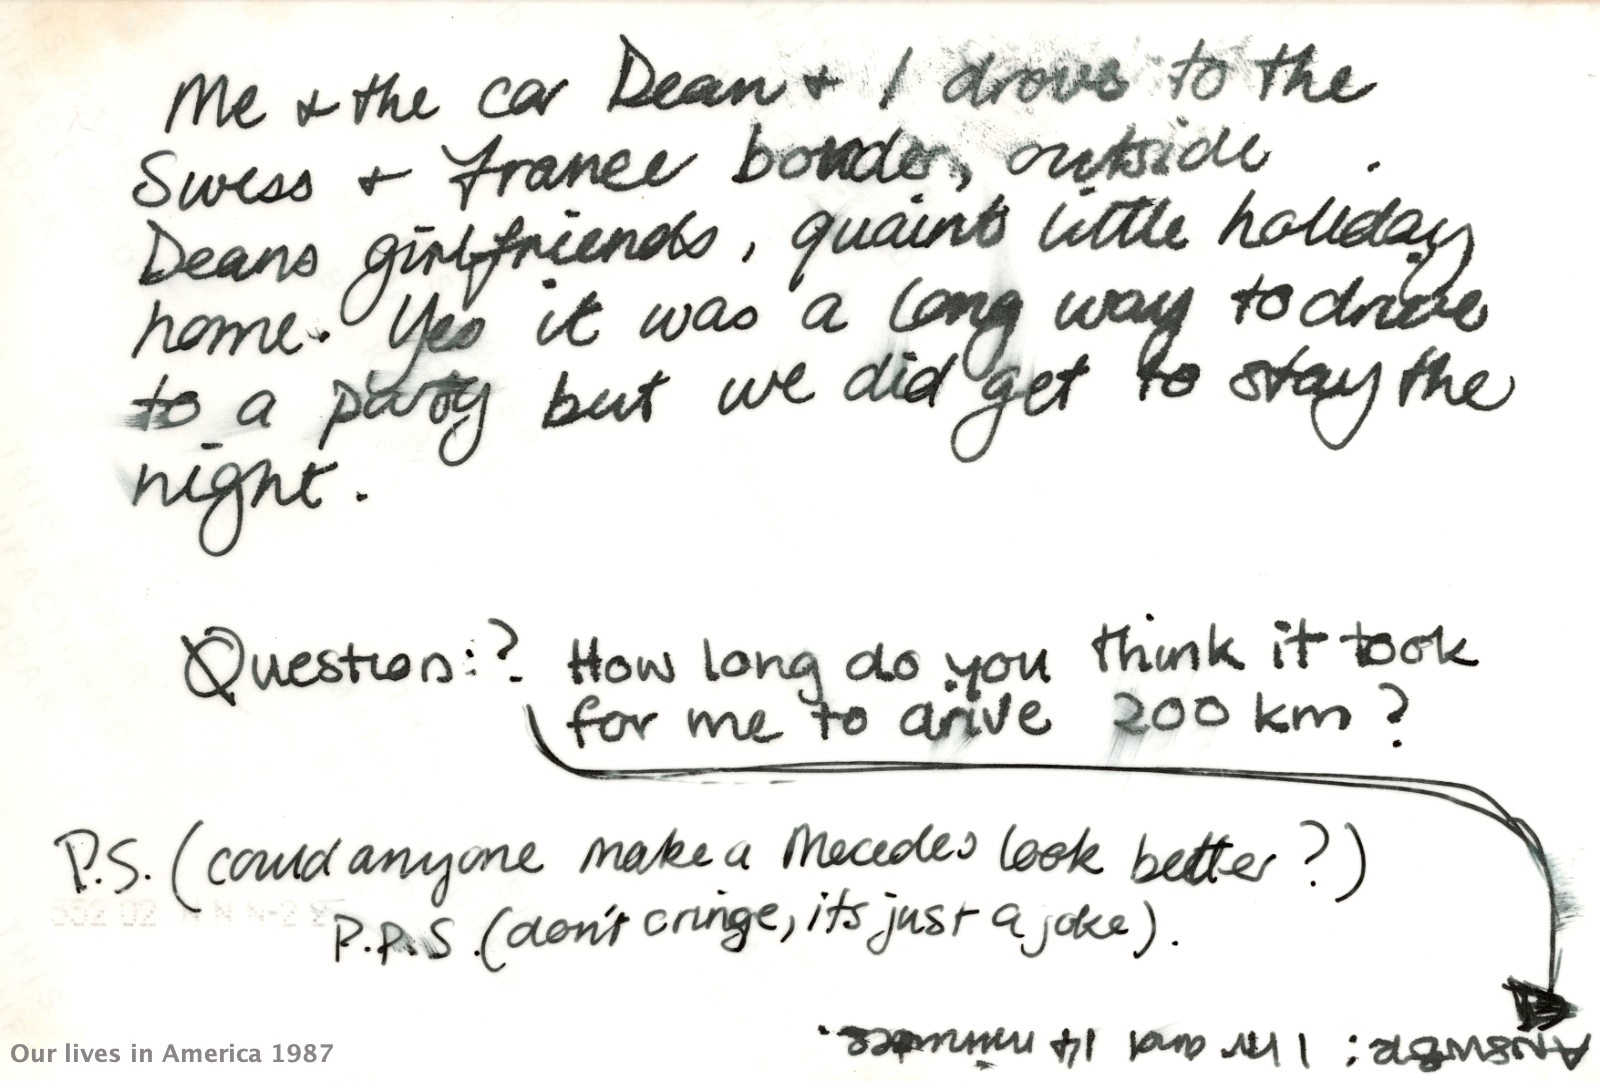 Me & the car Dean & I drove to the
Swess & France border, outside
Deans girlfriends, quaint little holiday
home. Yes it was a long way to drive
to a party but we did get to stay the
night.
Question:? How long do you think it took
for me to drive 200 km?
P.S. (could anyone make a Mecedes look better?)
P.P.S. (don't cringe, its just a joke).
Answer: 1 hr and 14 minutes.
Our lives in America 1987